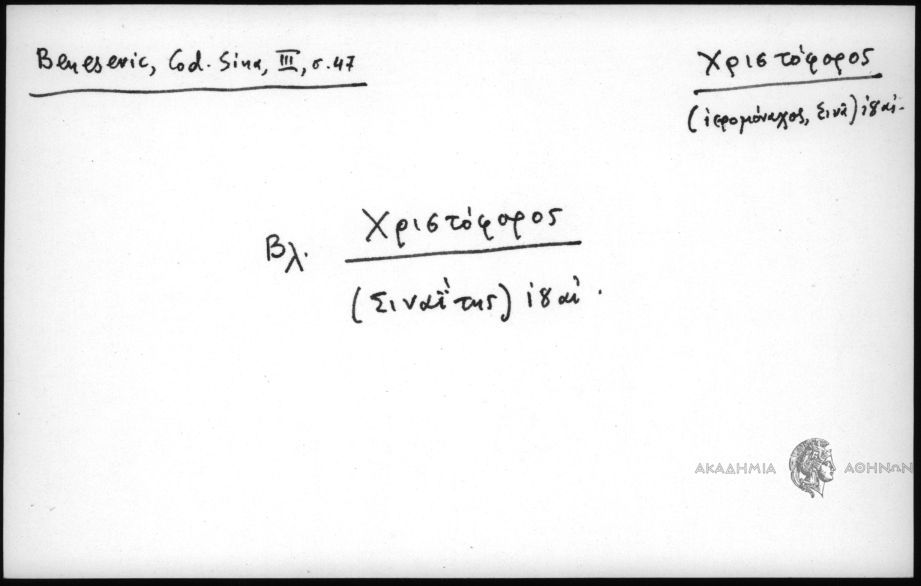 Benesevic, Cod. Sina, III, σ. 47
Χριστόφορος
(ἱερομόναχος, Σινᾶ) ιϛ αἰ.
Βλ. Χριστόφορος
(Σιναΐτης) ιϛ αἰ.
ΑΚΑΔΗΜΙΑ ΑΘΗΝΩΝ